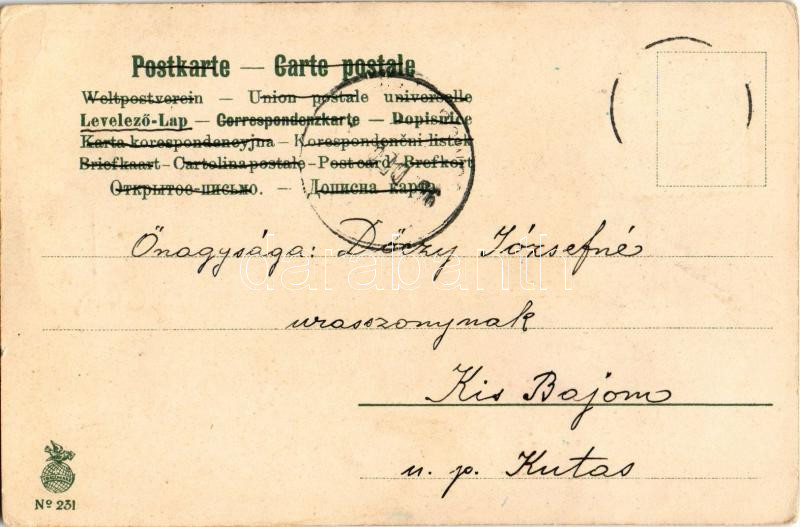 Postkarte — Carte postale
Weltpostverein — Union postale universelle
Levelező-Lap — Correspondenzkarte — Dopisnice
Karta korespondencyjna — Korespondenční lístek
Briefkaart — Cartolina postale — Post card — Brefkort
Открытое письмо. — Дописна карта.
Őnagysága: Dőczy Józsefné
urasszonynak
Kis Bajom
u. p. Kutas
darabanth
Nº 231